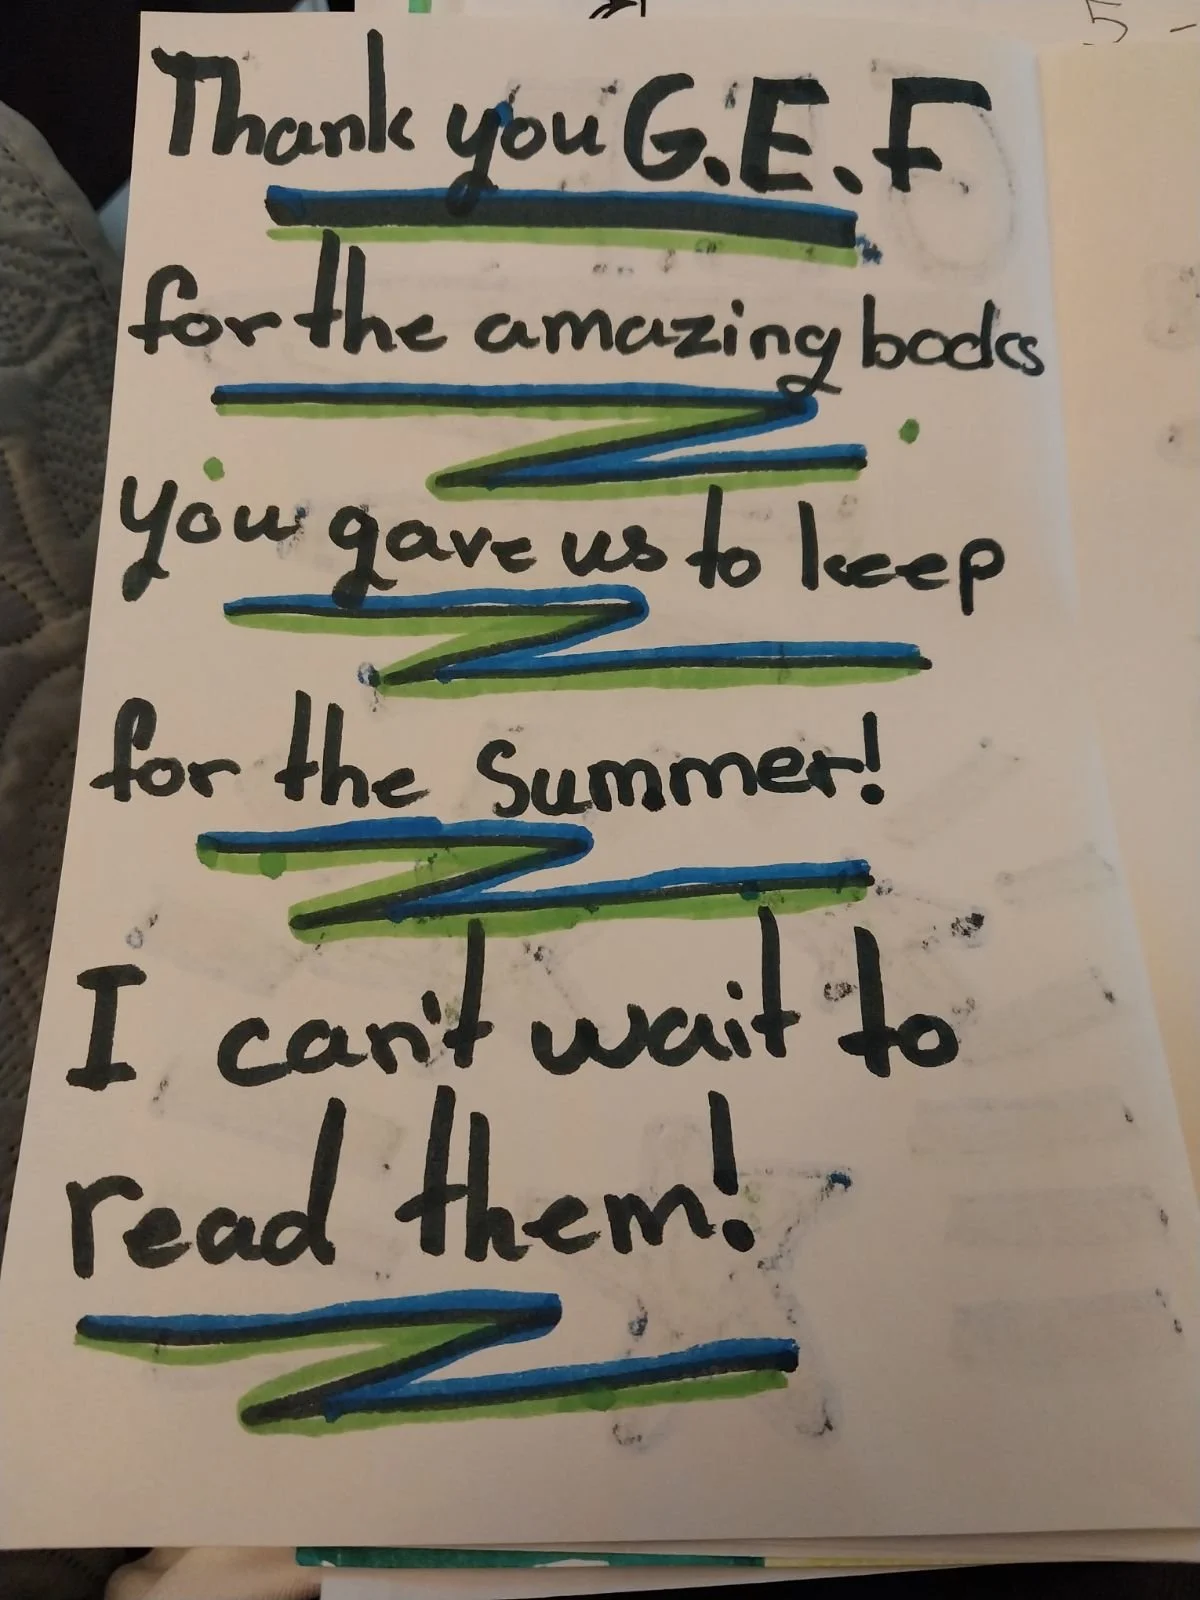 Thank you G.E.F
for the amazing books
you gave us to keep
for the Summer!
I can't wait to
read them!